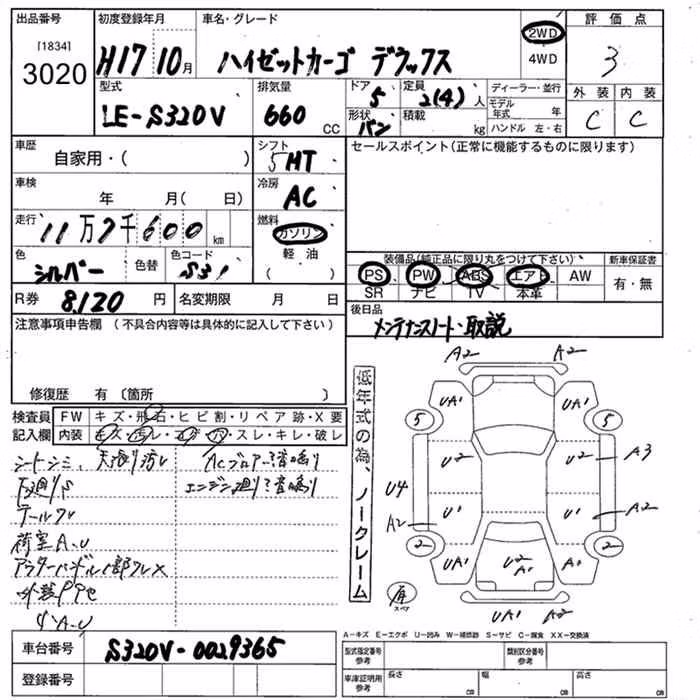 出品番号 初度登録年月 車名・グレード 評価点
[1834]
3020 H17 10月 ハイゼットカーゴ デラックス 2WD 4WD 3
型式 排気量 ドア 定員 ディーラー・並行 外装 内装
LE-S320V 660 CC 5 2(4)人 モデル年式 年 C C
形状 バン 積載 kg ハンドル 左・右
車歴 シフト セールスポイント(正常に機能するものに限ります)
自家用・( ) 5MT
車検 冷房
年 月( 日) AC
走行 燃料
11万7千600km ガソリン
色 色コード 軽油
シルバー 色替 S31 ( )
装備品(純正品に限り丸をつけて下さい) 新車保証書
PS PW ABS エアB AW 有・無
SR ナビ TV 本革
R券 8,120円 名変期限 月 日
後日品
メンテナンスノート・取説
注意事項申告欄 (不具合内容等は具体的に記入して下さい)
修復歴 有 〔箇所 〕
検査員記入欄 FW キズ・飛石・ヒビ割・リペア跡・X要
内装 キズ・汚レ・コゲ・穴・スレ・キレ・破レ
シートシミ、天張り汚レ ACブロアー?音鳴り
下廻りS エンジン廻り?音鳴り
荷室A.U
低年式の為、ノークレーム
A2 A2
UA1 UA1
5 5
U2 U2 A3
U4
U1 U1 A2
A2
2 2
UA1 U2 A1 A1
UA1 A2
スペア
A-キズ E-エクボ U-凹み W-補修跡 S-サビ C-腐食 XX-交換済
車台番号 S320V-0029365
登録番号
型式指定番号 参考 類別区分番号 参考
車庫証明用 参考 長さ cm 幅 cm 高さ cm